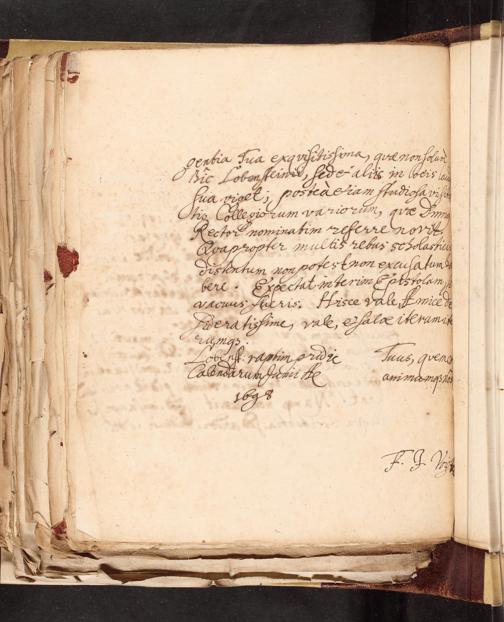 gentia Tua exqvisitissima, qvæ non solum
hic Lobensteinii, sed & aliis in locis
sua viget; posteà etiam studiosa
tio Collegiorum variorum, qvæ
Rector nominatim referre novit.
Qvapropter multis rebus scholasticis
distentum non potest non excusatum
bere. Expectat interim Epistolam,
vacuus fueris. Hisce vale, Amice
sideratissime, vale, & salve iterum
rumq;.
Lobenst. raptim pridie
Calendarum Junii
1698
Tuus, quem
animumq;
F. J.